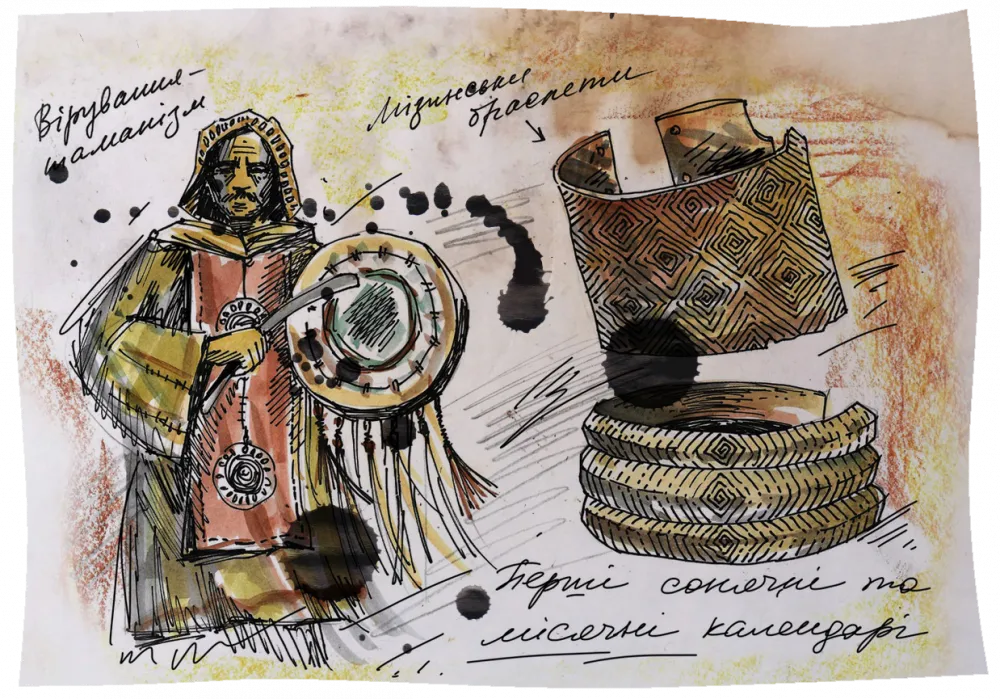 Вірування -
шаманізм
Мізинські
браслети
Перші сонячні та
місячні календарі